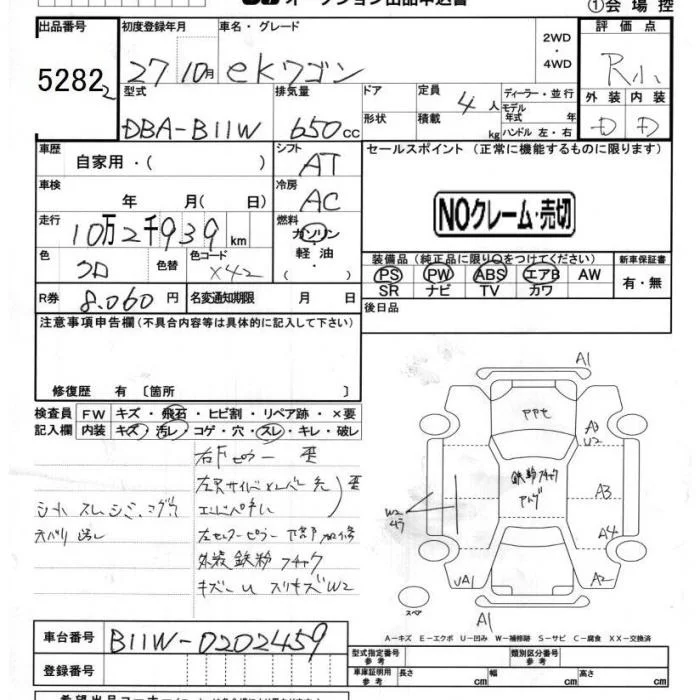 オークション出品申込書
①会場控
出品番号 初度登録年月 車名・グレード 2WD・4WD 評価点
52822 27 10月 eKワゴン R小
型式 排気量 ドア形状 定員 4人 積載 kg ディーラー・並行 モデル年式 年 ハンドル 左・右 外装 内装
DBA-B11W 650cc D D
車歴 自家用・( ) シフト AT セールスポイント(正常に機能するものに限ります)
車検 年 月( 日) 冷房 AC NOクレーム・売切
走行 10万2千939km 燃料 ガソリン・軽油・( )
色 クロ 色替 色コード X42 装備品(純正品に限り○をつけてください) 新車保証書
PS PW ABS エアB AW 有・無
SR ナビ TV カワ
R券 8.060円 名変通知期限 月 日 後日品
注意事項申告欄(不具合内容等は具体的に記入して下さい)
修復歴 有〔箇所 〕
検査員 FW キズ・飛石・ヒビ割・リペア跡・×要
記入欄 内装 キズ・汚レ・コゲ・穴・スレ・キレ・破レ
右Fピラー 歪
エンドパネル 歪
外装 鉄粉 フチャク
キズ U スリキズW2
A1
A3
U2
鉄粉フチャク
A3
W2
A4
UA1
A2
スペア
A1
A-キズ E-エクボ U-凹み W-補修跡 S-サビ C-腐食 XX-交換済
車台番号 B11W-0202459 型式指定番号 参考 類別区分番号 参考
登録番号 車庫証明用 参考 長さ cm 幅 cm 高さ cm